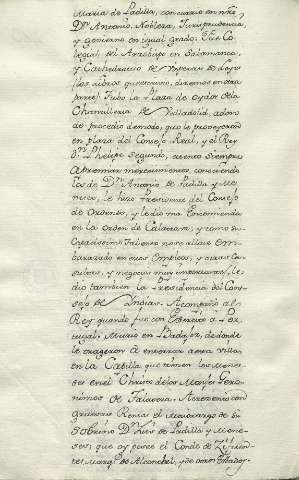 Maria de Padilla, concurrio en nro
Dn. Antonio, Nobleza, Jurisprudencia,
y govierno en igual grado. Fue Co
legial del Arzobispo en Salamanca,
y Cathedratico de Visperas de Leyes
los libros que escrivio, diremos en otra
parte. Tubo la Plaza de oydor de la
Chanzilleria de Valladolid, adon
de procedio de modo, que le promovieron
en plaza del Consejo Real, y el Rey
Dn. Phelipe Segundo, atento siempre
a premiar merecimientos, conociendo
los de Dn. Antonio de Padilla y Me
neses, le hizo Presidente del Consejo
de Ordenes, y le dio una Encomienda
en la Orden de Calatrava, y como su
Capacissimo Talento no se allave em
barazado en estos Empleos, y otras Con
sultas, y negocios muy importantes, le
dio tambien la Presidencia del Con
sejo de Indias. Acompaño al
Rey quando fue con Exercito a Por
tugal. Murio en Badajoz, de donde
le trageron a enterrar a esta villa
en la Capilla que tienen los Mene
ses en el Christo de los Monjes Gero
nimos de Talavera. Acrecento con
quantiosas Rentas el Mayorazgo de su
sobrino Dn. Luis de Padilla y Mene
ses, que oy posee el Conde de Zifuen
tes, Marqs. de Alconchel, y de otros Estados